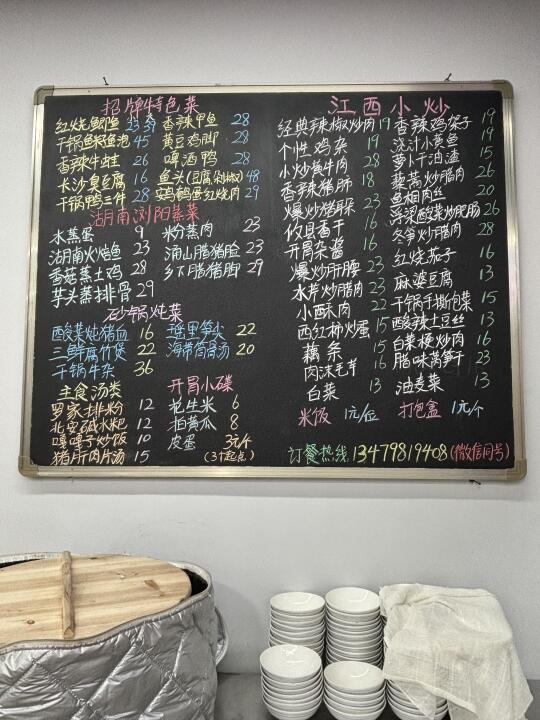 招牌特色菜
红烧鲫鱼 23 香辣甲鱼 28
干锅鲜鱼泡 45 黄豆鸡脚 28
香辣牛蛙 26 啤酒鸭 28
长沙臭豆腐 16 鱼头(豆腐/剁椒) 48
干锅鸭三件 28 鹌鹑蛋红烧肉 29
湖南浏阳蒸菜
水蒸蛋 9 粉蒸肉 23
湖南火焙鱼 23 腊猪脸 23
香菇蒸土鸡 28 乡下腊猪脚 29
芋头蒸排骨 29
砂锅炖菜
酸菜炖猪血 16 笋尖 22
三鲜腐竹煲 22 海带筒骨汤 20
干锅牛杂 36
主食汤类
罗家排粉 12
北空碱水粑 12
嘎嘎子炒饭 10
猪肝肉片汤 15
开胃小碟
花生米 6
拍黄瓜 8
皮蛋 3元/个
(3个起点)
江西小炒
经典辣椒炒肉 19 香辣鸡架子 19
个性鸡杂 19 浇汁小黄鱼 19
小炒黄牛肉 28 萝卜干油渣 15
香辣猪肺 18 藜蒿炒腊肉 26
爆炒猪耳朵 23 鱼香肉丝 20
攸县香干 16 酸菜炒肥肠 26
开胃杂酱 16 冬笋炒腊肉 28
爆炒肝腰 23 红烧茄子 16
水芹炒腊肉 23 麻婆豆腐 13
小酥肉 22 干锅手撕包菜 15
西红柿炒蛋 15 酸辣土豆丝 13
藕条 15 白菜梗炒肉 16
肉沫毛芋 16 腊味莴笋子 23
白菜 13 油麦菜 13
米饭 1元/位 打包盒 1元/个
订餐热线 13479819408(微信同号)